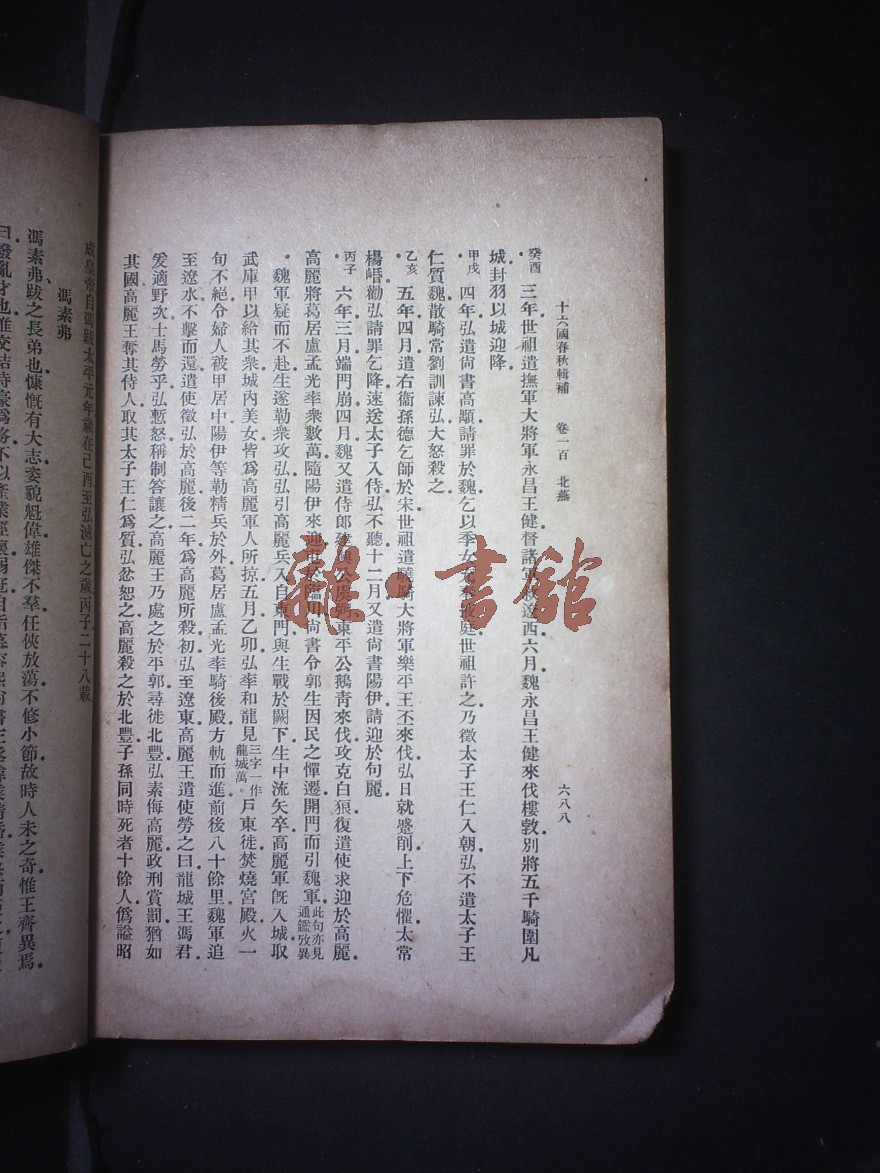 十六國春秋輯補 卷一百 北燕 六八八
癸酉 三年世祖遣撫軍大將軍永昌王健督諸軍救遼西六月魏永昌王健來伐樓敦別將五千騎圍凡
城封羽以城迎降
甲戌 四年弘遣尚書高顒請罪於魏乞以季女充掖庭世祖許之乃徵太子王仁入朝弘不遣太子王
仁質魏散騎常劉訓諫弘大怒殺之
乙亥 五年四月遣右衞孫德乞師於宋世祖遣驍騎大將軍樂平王丕來伐弘日就蹙削上下危懼太常
楊㟭勸弘請罪乞降速送太子入侍弘不聽十二月又遣尚書陽伊請迎於句麗
丙子 六年三月端門崩四月魏又遣侍郎建興公東平公鵝青來伐攻克白狼復遣使求迎於高麗
高麗將葛居盧孟光率衆數萬隨陽伊來迎屯於臨川尚書令郭生因民之憚遷開門而引魏軍此句亦見通鑑攷異
魏軍疑而不赴生遂勒衆攻弘弘引高麗兵入自東門與生戰於闕下生中流矢卒高麗軍既入城取
武庫甲以給其衆城內美女皆爲高麗軍人所掠五月乙卯弘率和龍見三字一作龍城萬戶東徙焚燒宮殿火一
旬不絕令婦人被甲居中陽伊等勒精兵於外葛居盧孟光率騎後殿方軌而進前後八十餘里魏軍追
至遼水不擊而還遣使徵弘於高麗後二年爲高麗所殺初弘至遼東高麗王遣使勞之曰龍城王馮君
爰適野次士馬勞乎弘慙怒稱制答讓之高麗王乃處之於平郭尋徙北豐弘素侮高麗政刑賞罰猶如
其國高麗王奪其侍人取其太子王仁爲質弘忿恕之高麗殺之於北豐子孫同時死者十餘人僞謚昭
成皇帝自馮跋太平元年歲在己酉至弘滅亡之歲丙子二十八載
馮素弗
馮素弗跋之長弟也慷慨有大志姿貌魁偉雄傑不羣任俠放蕩不修小節故時人未之奇惟王齊異焉
曰撥亂才也惟交結時豪爲務不以產業經
龍·書館